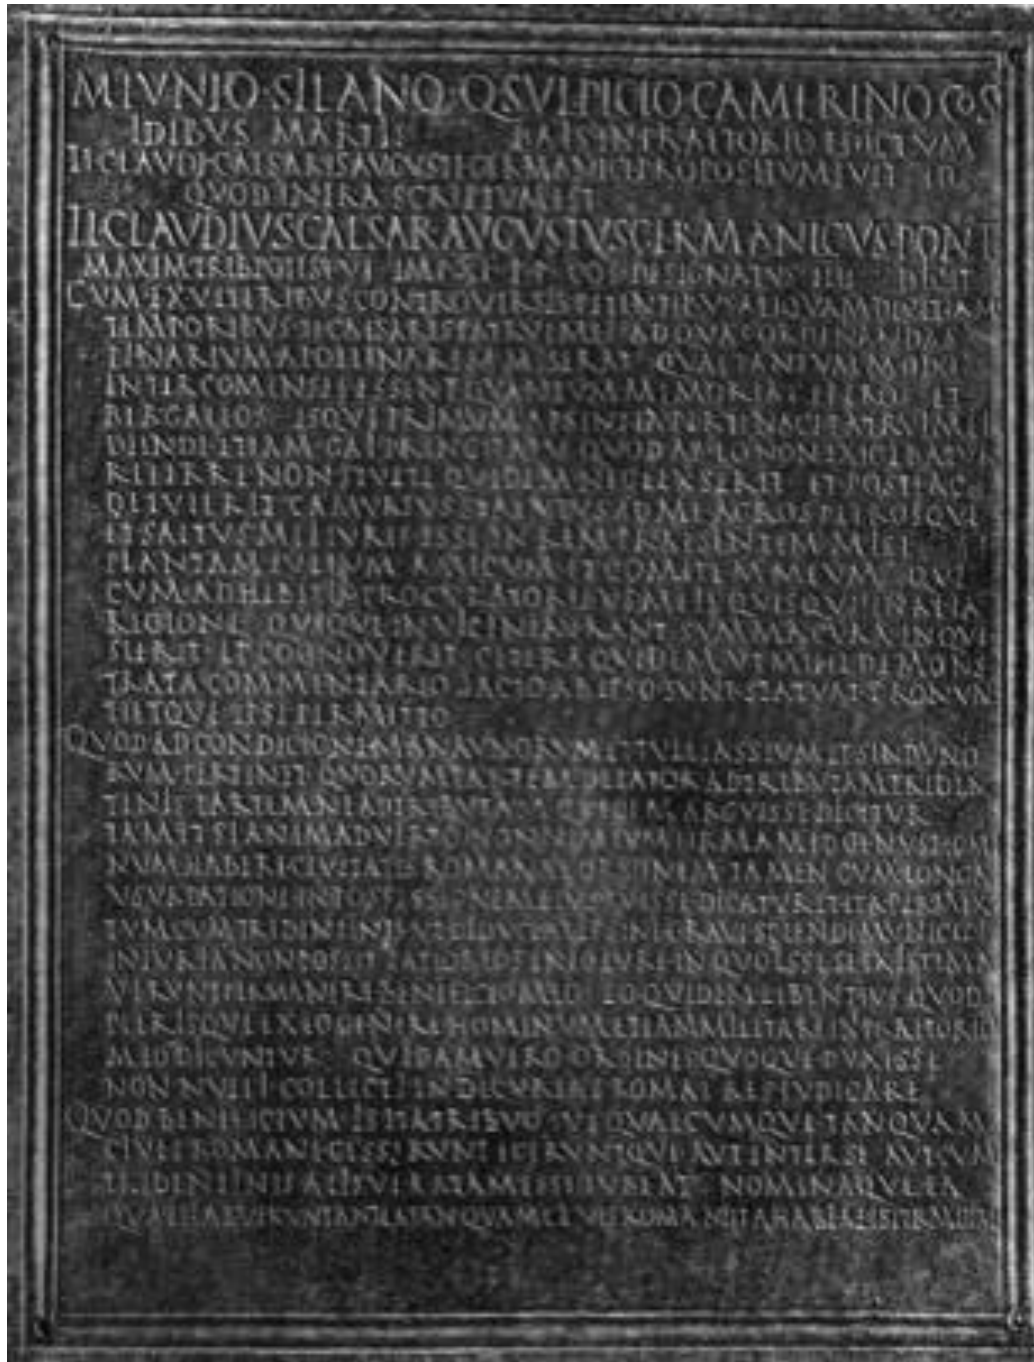 M IVNIO SILANO Q SVLPICIO CAMERINO COS
IDIBVS MARTIS BAIS IN PRAETORIO EDICTVM
TI CLAVDI CAESARIS AVGVSTI GERMANICI PROPOSITVM FVIT ID
QVOD INFRA SCRIPTVM EST
TI CLAVDIVS CAESAR AVGVSTVS GERMANICVS PONT
MAXIM TRIB POTEST VI IMP XI P P COS DESIGNATVS IIII DICIT
CVM EX VETERIBVS CONTROVERSIS PETENTIBVS ALIQVAMDIV ETIAM
TEMPORIBVS TI CAESARIS PATRVI MEI AD QVAS ORDINANDAS
PINARIVM APOLLINAREM MISERAT QVAE TANTVM MODO
INTER COMENSES ESSENT QVANTVM MEMORIA REFERO ET
BERGALEOS ISQVE PRIMVM APSENTIA PERTINACI PATRVI MEI
DEINDE ETIAM GAI PRINCIPATV QVOD AB EO NON EXIGEBATVR
REFERRE NON STVLTE QVIDEM NEGLEXSERIT ET POSTEAC
DETVLERIT CAMVRIVS STATVTVS AD ME AGROS PLEROSQVE
ET SALTVS MEI IVRIS ESSE IN REM PRAESENTEM MISI
PLANTAM IVLIVM AMICVM ET COMITEM MEVM QVI
CVM ADHIBITIS PROCVRATORIBVS MEIS QVISQVE IN ALIA
REGIONE QVIQVE IN VICINIA ERANT SVMMA CVRA INQVI
SIERIT ET COGNOVERIT CETERA QVIDEM VT MIHI DEMONS
TRATA COMMENTARIO FACTO AB IPSO SVNT STATVAT PRONVN
TIETQVE IPSI PERMITTO
QVOD AD CONDICIONEM ANAVNORVM ET TVLLIASSIVM ET SINDVNO
RVM PERTINET QVORVM PARTEM DELATOR ADTRIBVTAM TRIDEN
TINIS PARTEM NE ADTRIBVTAM QVIDEM ARGVISSE DICITVR
TAM ET SI ANIMADVERTO NON NIMIVM FIRMAM ID GENVS HOMI
NVM HABERE CIVITATIS ROMANAE ORIGINEM TAMEN CVM LONGA
VSVRPATIONE IN POSSESSIONEM EIVS FVISSE DICATVR ET ITA PERMIX
TVM CVM TRIDENTINIS VT DIDVCI AB IS SINE GRAVI SPLENDIDI MVNICIPI
INIVRIA NON POSSIT PATIOR EOS IN EO IVRE IN QVO ESSE SE EXISTIMA
VERVNT PERMANERE BENIFICIO MEO EO QVIDEM LIBENTIVS QVOD
PLERISQVE EX EO GENERE HOMINVM ETIAM MILITARE IN PRAETORIO
MEO DICVNTVR QVIDAM VERO ORDINES QVOQVE DVXISSE
NON NVLLI COLLECTI IN DECVRIAS ROMAE RES IVDICARE
QVOD BENIFICIVM IS ITA TRIBVO VT QVAECVMQVE TANQVAM
CIVES ROMANI GESSERVNT EGERVNTQVE AVT INTER SE AVT CVM
TRIDENTINIS ALISVE RATA ESSE IVBEAT NOMINAQVE EA
QVAE HABVERVNT ANTEA TANQVAM CIVES ROMANI ITA HABERE IS PERMITTAM